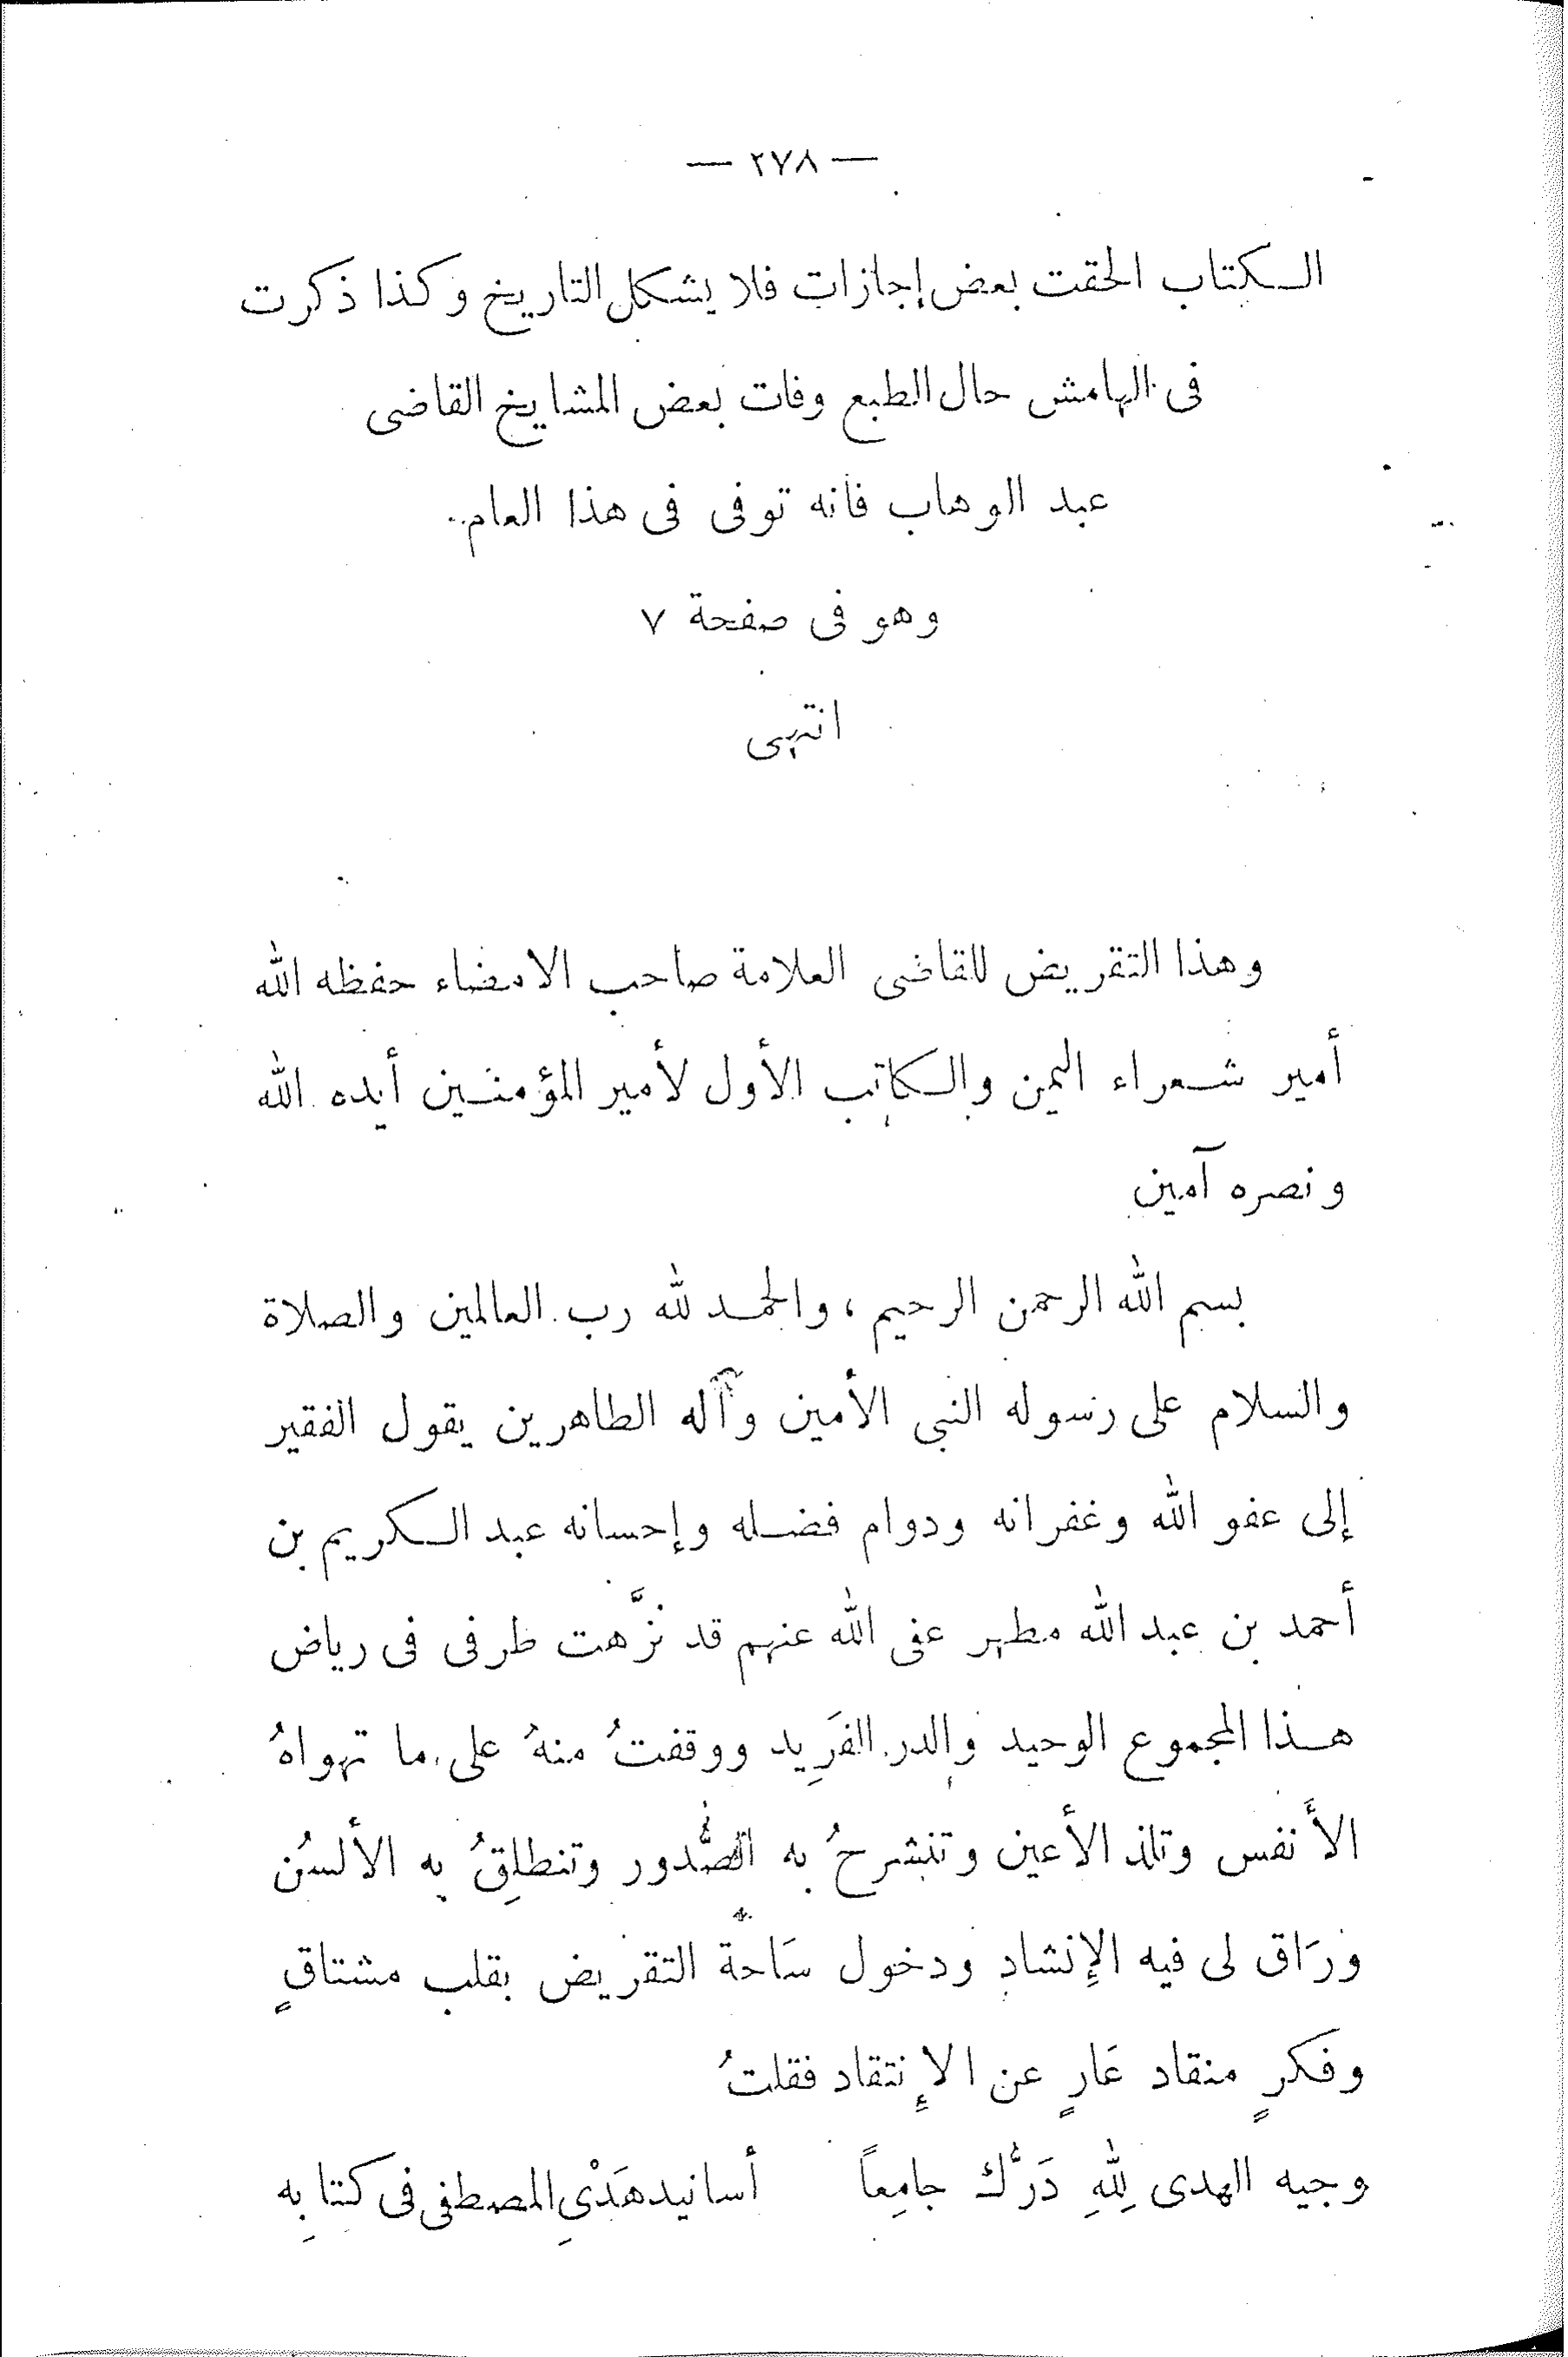 — ٢٧٨ —
الكتاب الحقت بعض إجازات فلا يشكل التاريخ وكذا ذكرت
فى الهامش حال الطبع وفات بعض المشايخ القاضى
عبد الوهاب فانه توفى فى هذا العام.
وهو فى صفحة ٧
انتهى
وهذا التقريض للقاضى العلامة صاحب الامضاء حفظه الله
أمير شعراء اليمن والكاتب الأول لأمير المؤمنين أيده الله
ونصره آمين
بسم الله الرحمن الرحيم ، والحمد لله رب العالمين والصلاة
والسلام على رسوله النبى الأمين وآله الطاهرين يقول الفقير
إلى عفو الله وغفرانه ودوام فضله وإحسانه عبد الكريم بن
أحمد بن عبد الله مطهر عفى الله عنهم قد نزَّهت طرفى فى رياض
هذا المجموع الوحيد والدر الفَرِيد ووقفتُ منهُ على ما تهواهُ
الأَنفس وتلذ الأعين وتنشرحُ به الصُّدور وتنطلِقُ به الألسُن
ورَاق لى فيه الإِنشاد ودخول سَاحة التقريض بقلب مشتاقٍ
وفكرٍ منقاد عَارٍ عن الإِنتقاد فقلتُ
وجيه الهدى لِلهِ دَرُّك جامِعاً أسانيد هَدْىِ المصطفى فى كتابِه